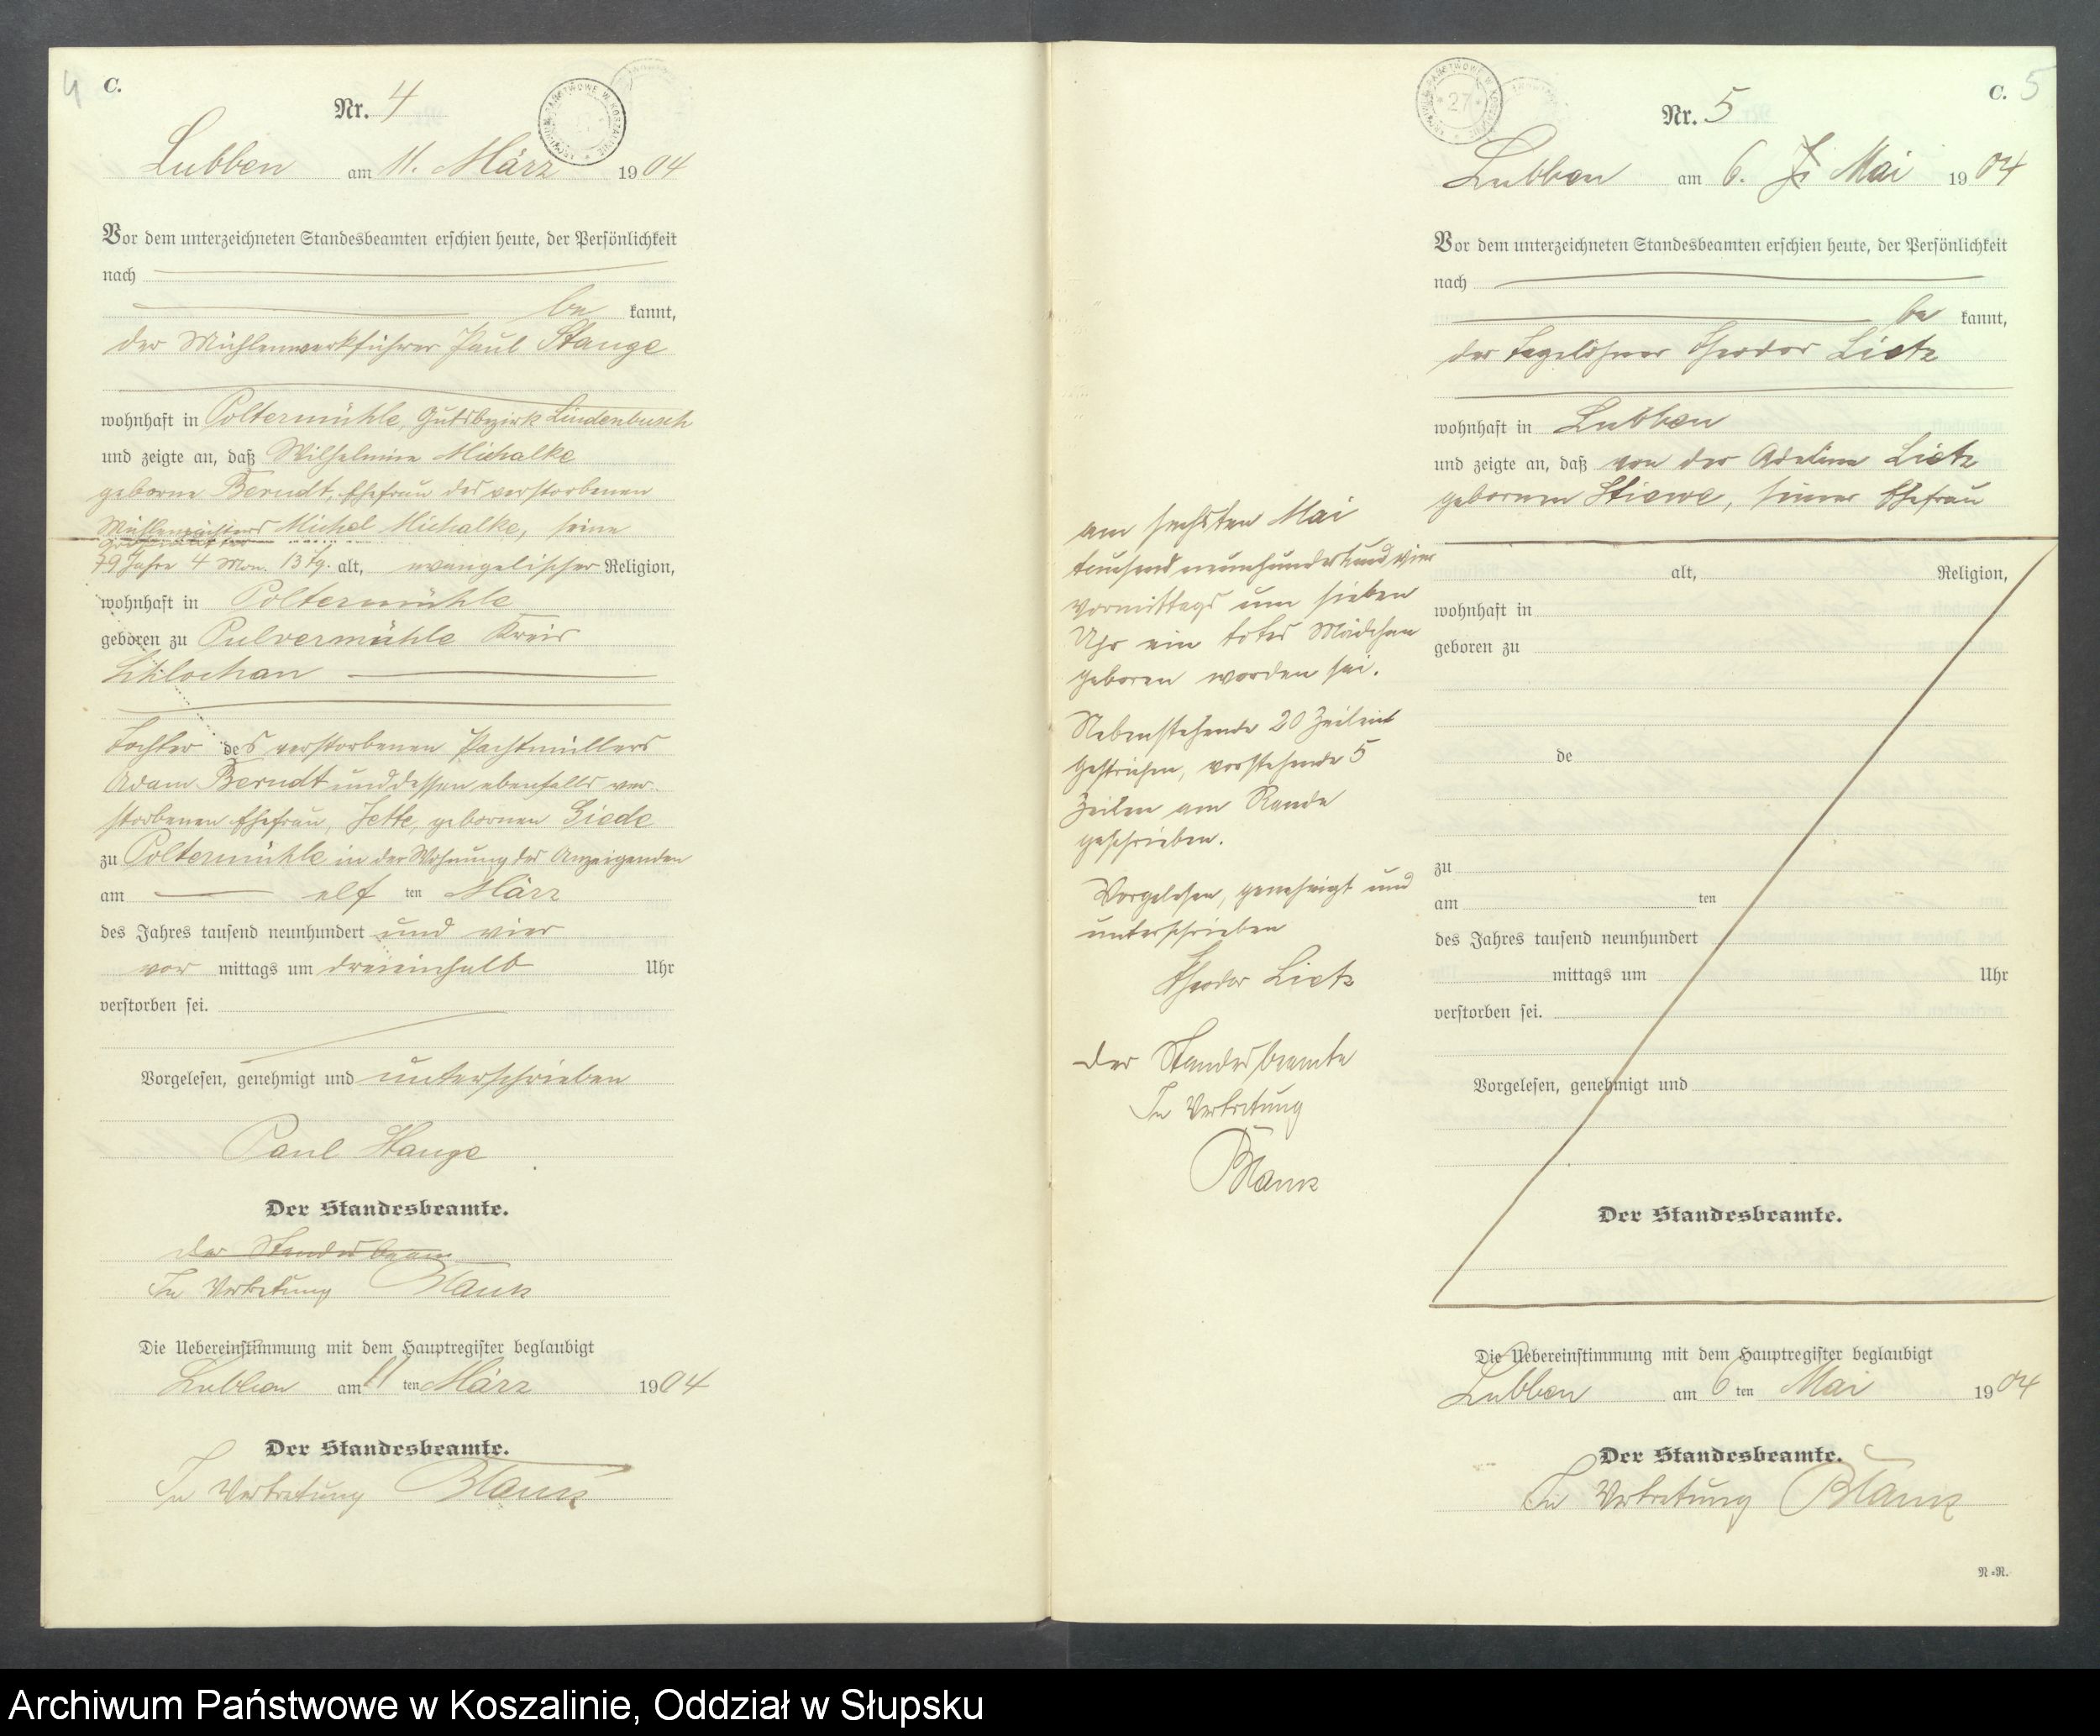 4
C.
Nr. 4
Lubben am 11. März 1904
Vor dem unterzeichneten Standesbeamten erschien heute, der Persönlichkeit
nach
be kannt,
der Mühlenwerkführer Paul Stange
wohnhaft in Poltermühle, Gutsbezirk Lindenbusch
und zeigte an, daß Wilhelmine Michalke
geborne Berndt, Ehefrau des verstorbenen
Mühlenmeisters Michel Michalke, seine
Großmutter
79 Jahre 4 Mon. 13 Tg. alt, evangelischer Religion,
wohnhaft in Poltermühle
geboren zu Pulvermühle Kreis
Schlochau
Tochter des verstorbenen Pachtmüllers
Adam Berndt und dessen ebenfalls ver-
storbenen Ehefrau, Jette, gebornen Giede
zu Poltermühle in der Wohnung des Anzeigenden
am elf ten März
des Jahres tausend neunhundert und vier
vor mittags um dreieinhalb Uhr
verstorben sei.
Vorgelesen, genehmigt und unterschrieben
Paul Stange
Der Standesbeamte.
Der Standesbeam
In Vertretung Blank
Die Uebereinstimmung mit dem Hauptregister beglaubigt
Lubben am 11 ten März 1904
Der Standesbeamte.
In Vertretung Blank
C. 5
27
Nr. 5
Lubben am 6. Mai 1904
Vor dem unterzeichneten Standesbeamten erschien heute, der Persönlichkeit
nach
be kannt,
der Tagelöhner Theodor Lietz
wohnhaft in Lubben
und zeigte an, daß von der Adeline Lietz
gebornen Stiewe, seiner Ehefrau
am sechsten Mai
tausend neunhundert und vier
Vormittags um sieben
Uhr ein totes Mädchen
geboren worden sei.
Nebenstehende 20 Zeilen
gestrichen, vorstehende 5
Zeilen am Rande
geschrieben.
Vorgelesen, genehmigt und
unterschrieben
Theodor Lietz
Der Standesbeamte
In Vertretung
Blank
alt, Religion,
wohnhaft in
geboren zu
de
zu
am ten
des Jahres tausend neunhundert
mittags um Uhr
verstorben sei.
Vorgelesen, genehmigt und
Der Standesbeamte.
Die Uebereinstimmung mit dem Hauptregister beglaubigt
Lubben am 6 ten Mai 1904
Der Standesbeamte.
In Vertretung Blank
N.=R.
Archiwum Państwowe w Koszalinie, Oddział w Słupsku